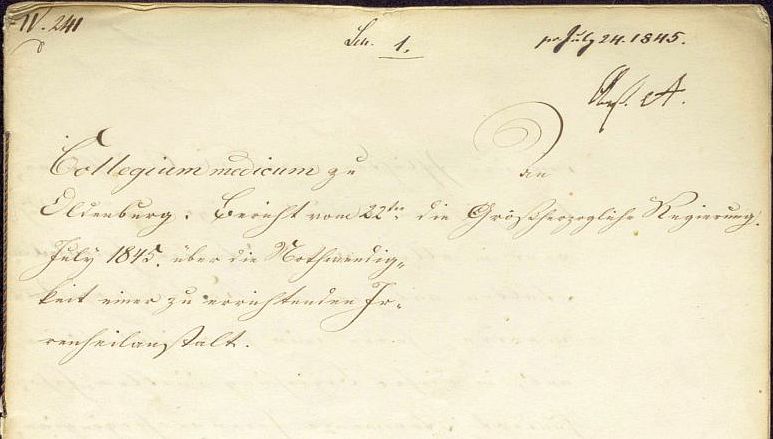 IV. 241
1.
pr July 24. 1845.
A.
Collegium medicum zu
Oldenburg. Bericht vom 22ten
July 1845. über die Nothwendig-
keit einer zu errichtenden Ir-
renheilanstalt.
An
die Großherzogliche Regierung.